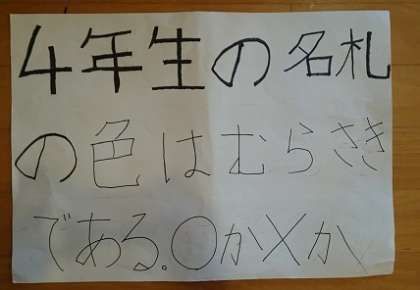 4年生の名札
の色はむらさき
である。○か×か